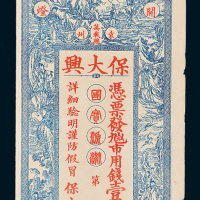 開
燈
袁州
保大興
憑票發兌市用錢壹
第
詳細驗明謹防假冒 保